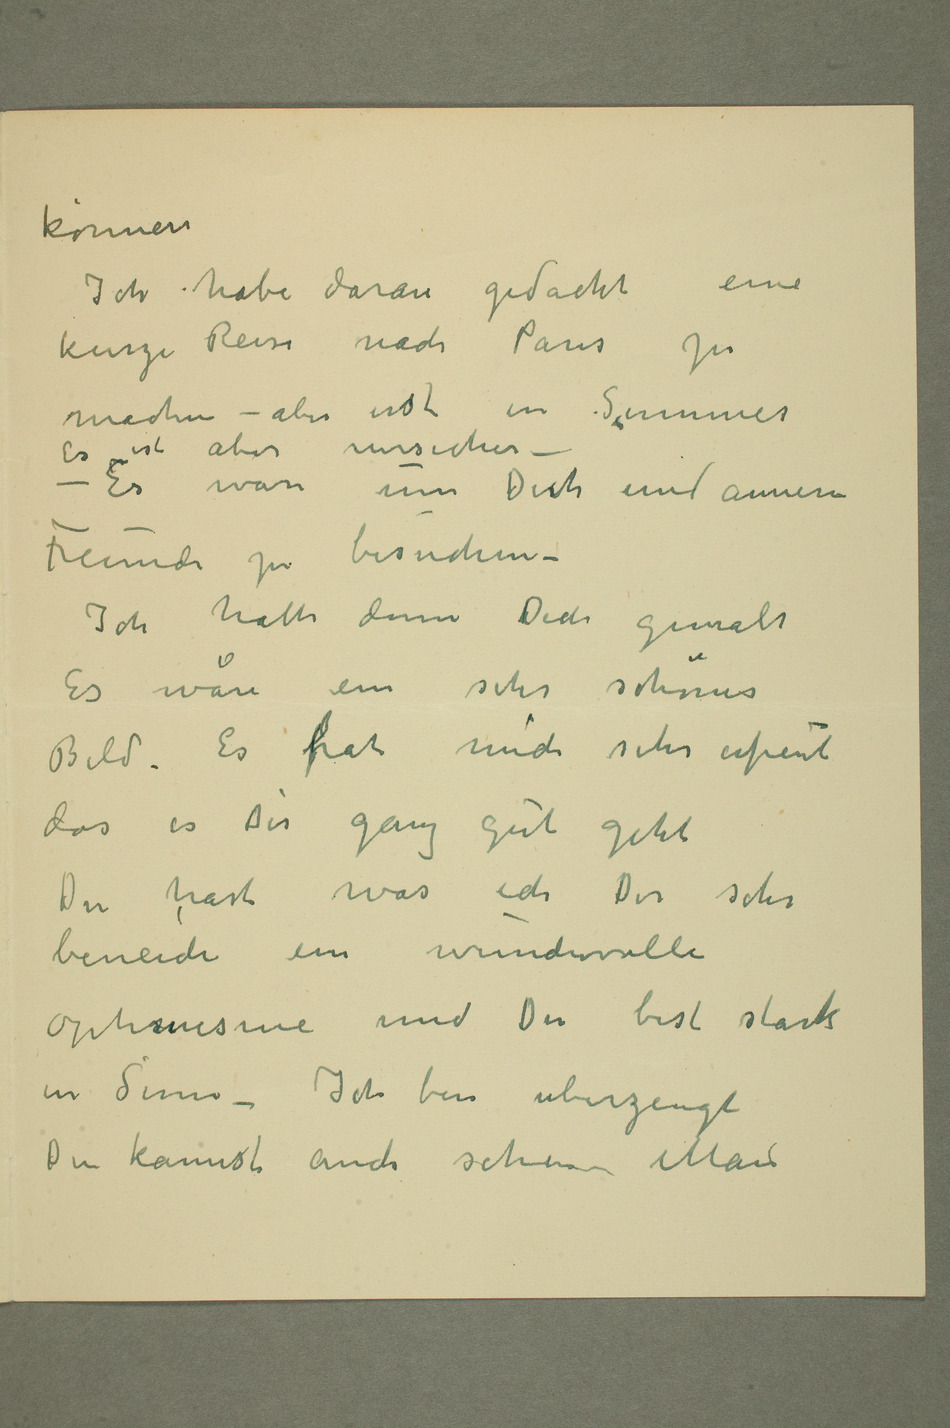 können
Ich habe daran gedacht eine
kurze Reise nach Paris zu
machen – aber erst in Sommer
Es ist aber unsicher –
– Es wäre um Dich und annere
Freunde zu besuchen –
Ich hatte dann Dich gemalt
Es wäre ein sehr schönes
Bild. Es hat mich sehr erfreut
das es Dir ganz gut geht
Du hast was ich Dir sehr
beneide ein wundervolle
optimisme und Du bist stark
in Sinn – Ich bin uberzeugt
Du kannst auch schon Mai